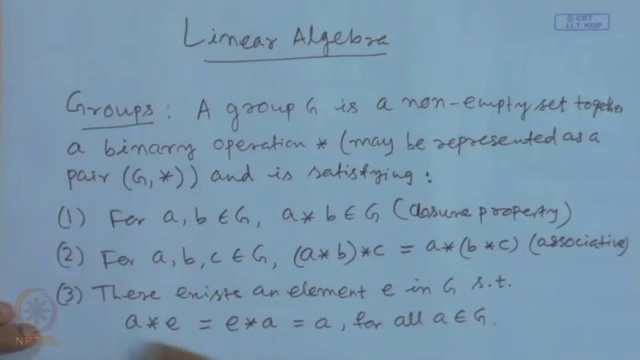 © CET
I.I.T. KGP
Linear Algebra
Groups : A group G is a non-empty set together
a binary operation * (may be represented as a
pair (G, *)) and is satisfying :
(1) For a, b ∈ G, a * b ∈ G (closure property)
(2) For a, b, c ∈ G, (a * b) * c = a * (b * c) (associative)
(3) There exists an element e in G s.t.
a * e = e * a = a, for all a ∈ G.
NPTEL